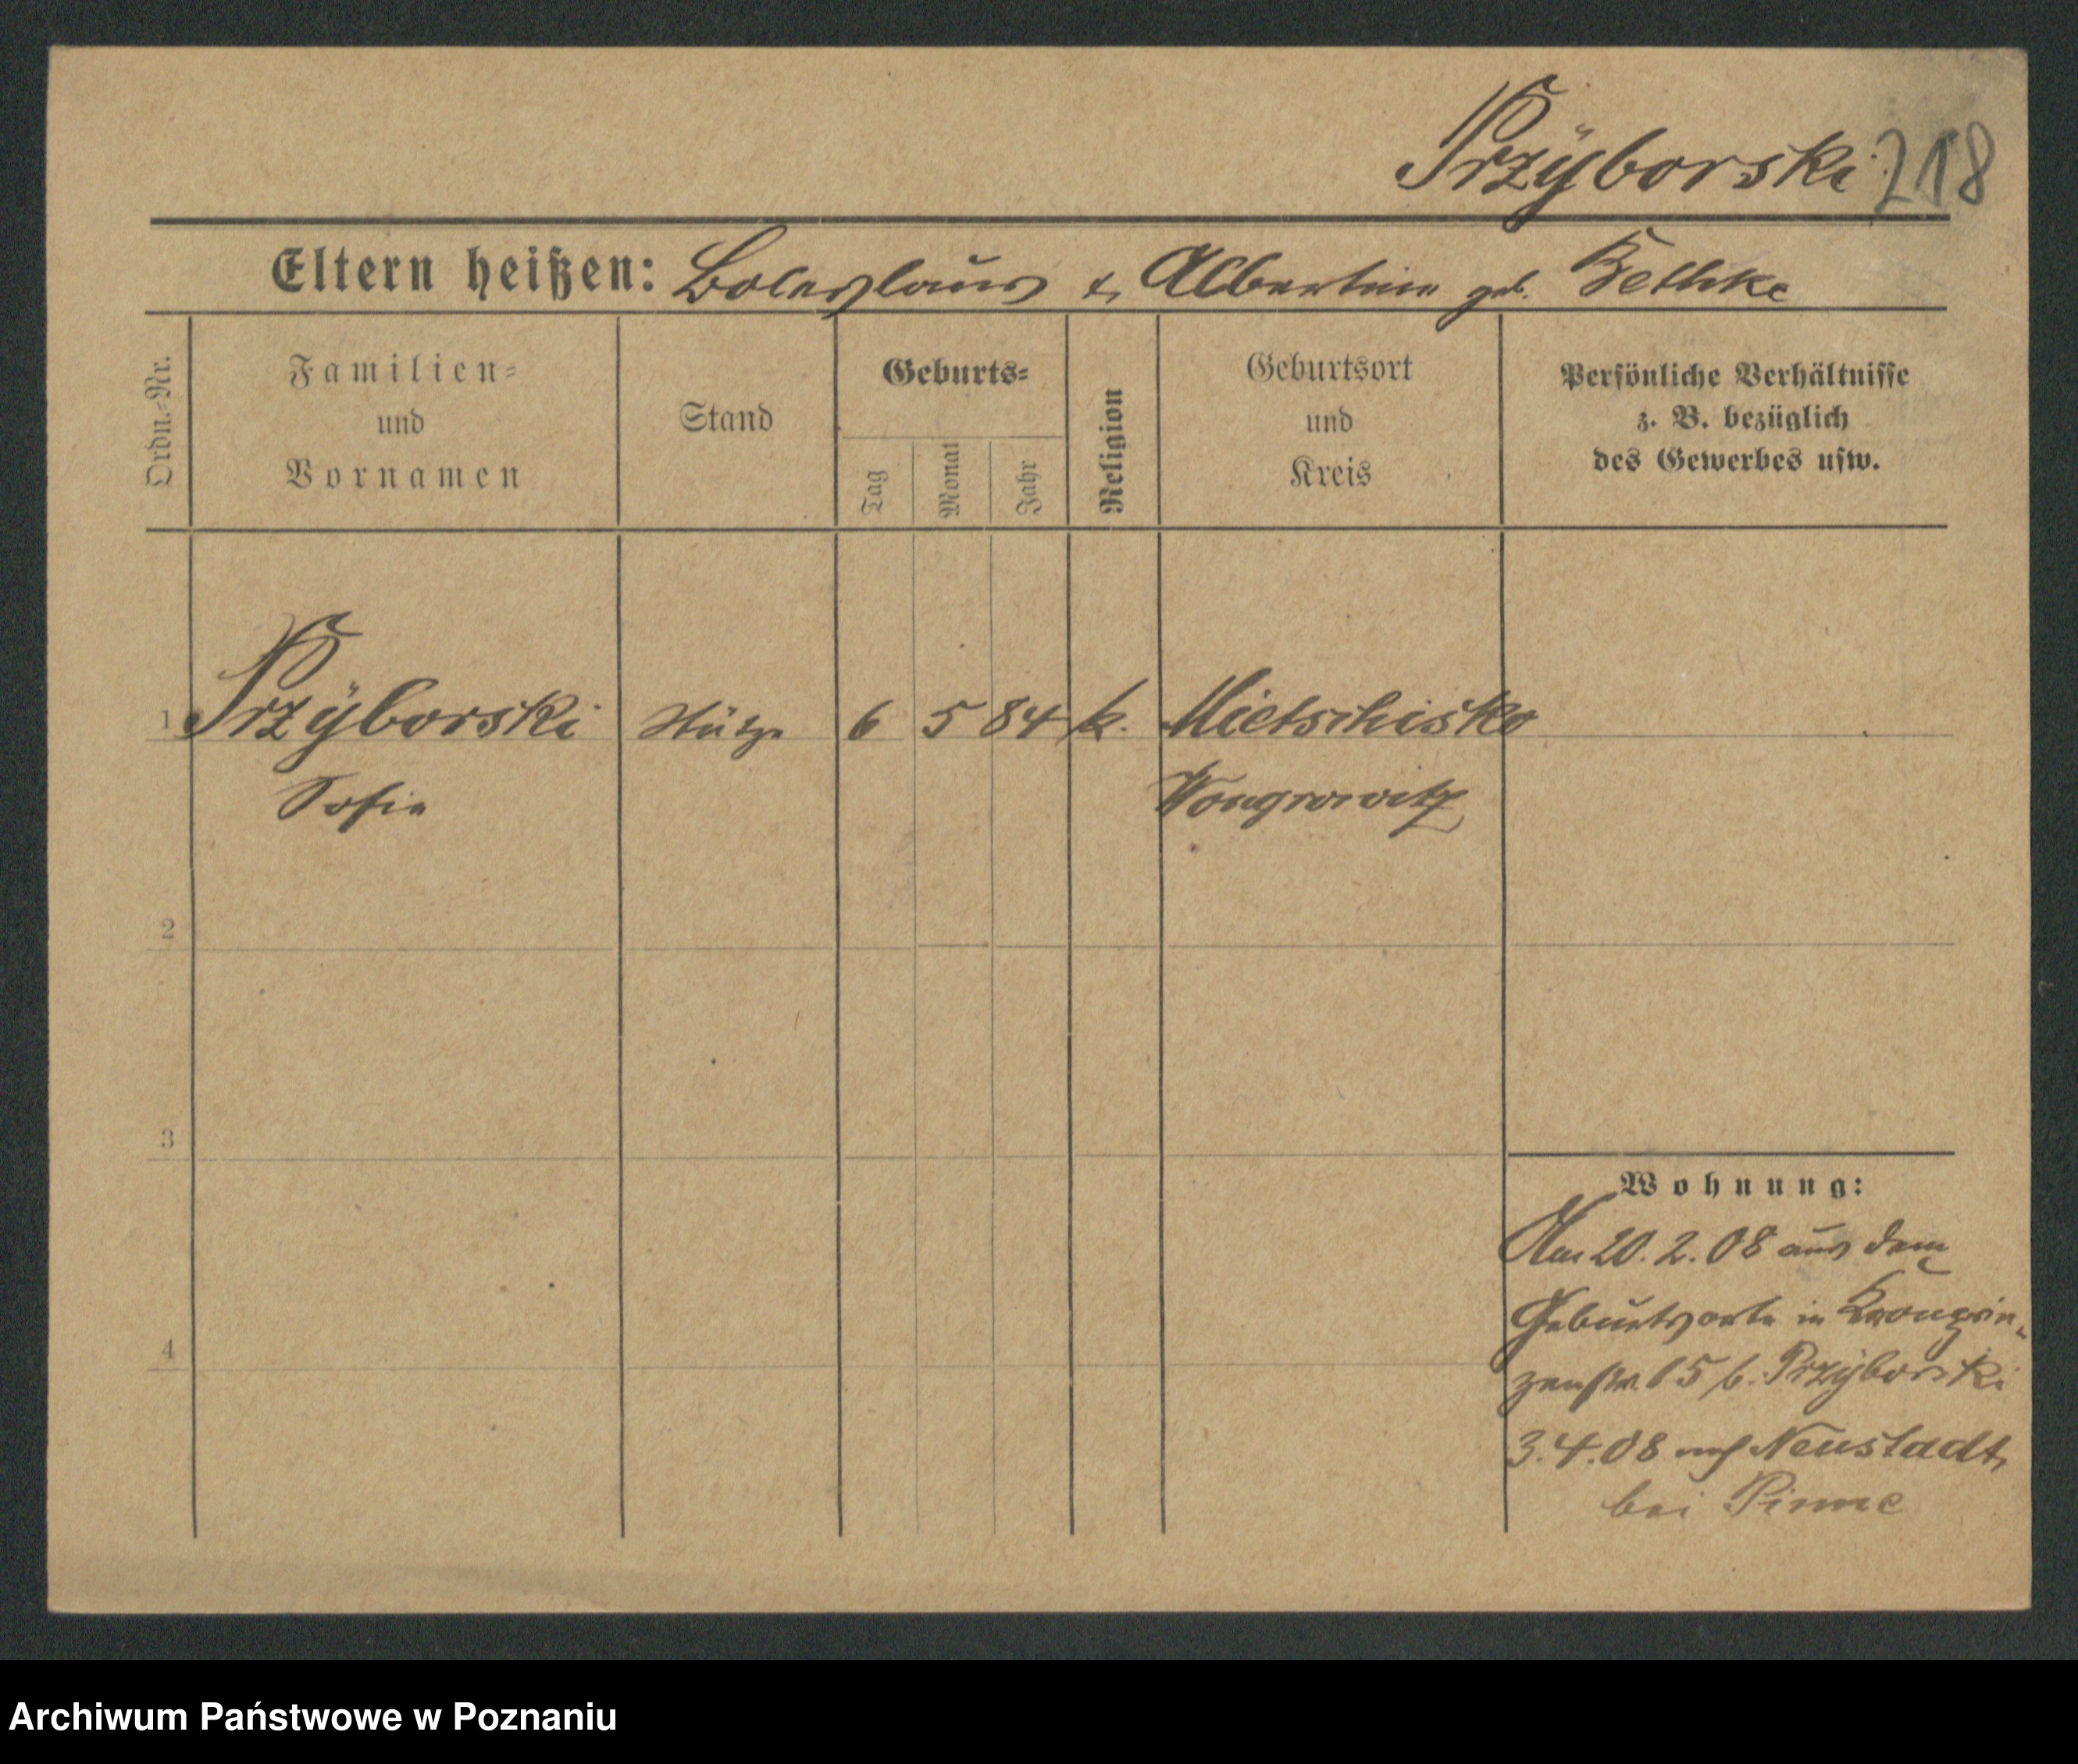 Przÿborski 218
Eltern heißen: Boleslaus & Albertine geb. Bethke
Ordn.-Nr.
Familien-
und
Vornamen
Stand
Geburts-
Tag
Monat
Jahr
Religion
Geburtsort
und
Kreis
Persönliche Verhältnisse
z. B. bezüglich
des Gewerbes usw.
1 Przÿborski Stütze 6 5 84 k. Mietschisko
Sofie Wongrowitz
2
3
4
Wohnung:
Am 20.2.08 aus dem
Geburtsorte in Kronprin-
zenstr. 15 b. Przÿborski
3.4.08 nach Neustadt
bei Pinne
Archiwum Państwowe w Poznaniu